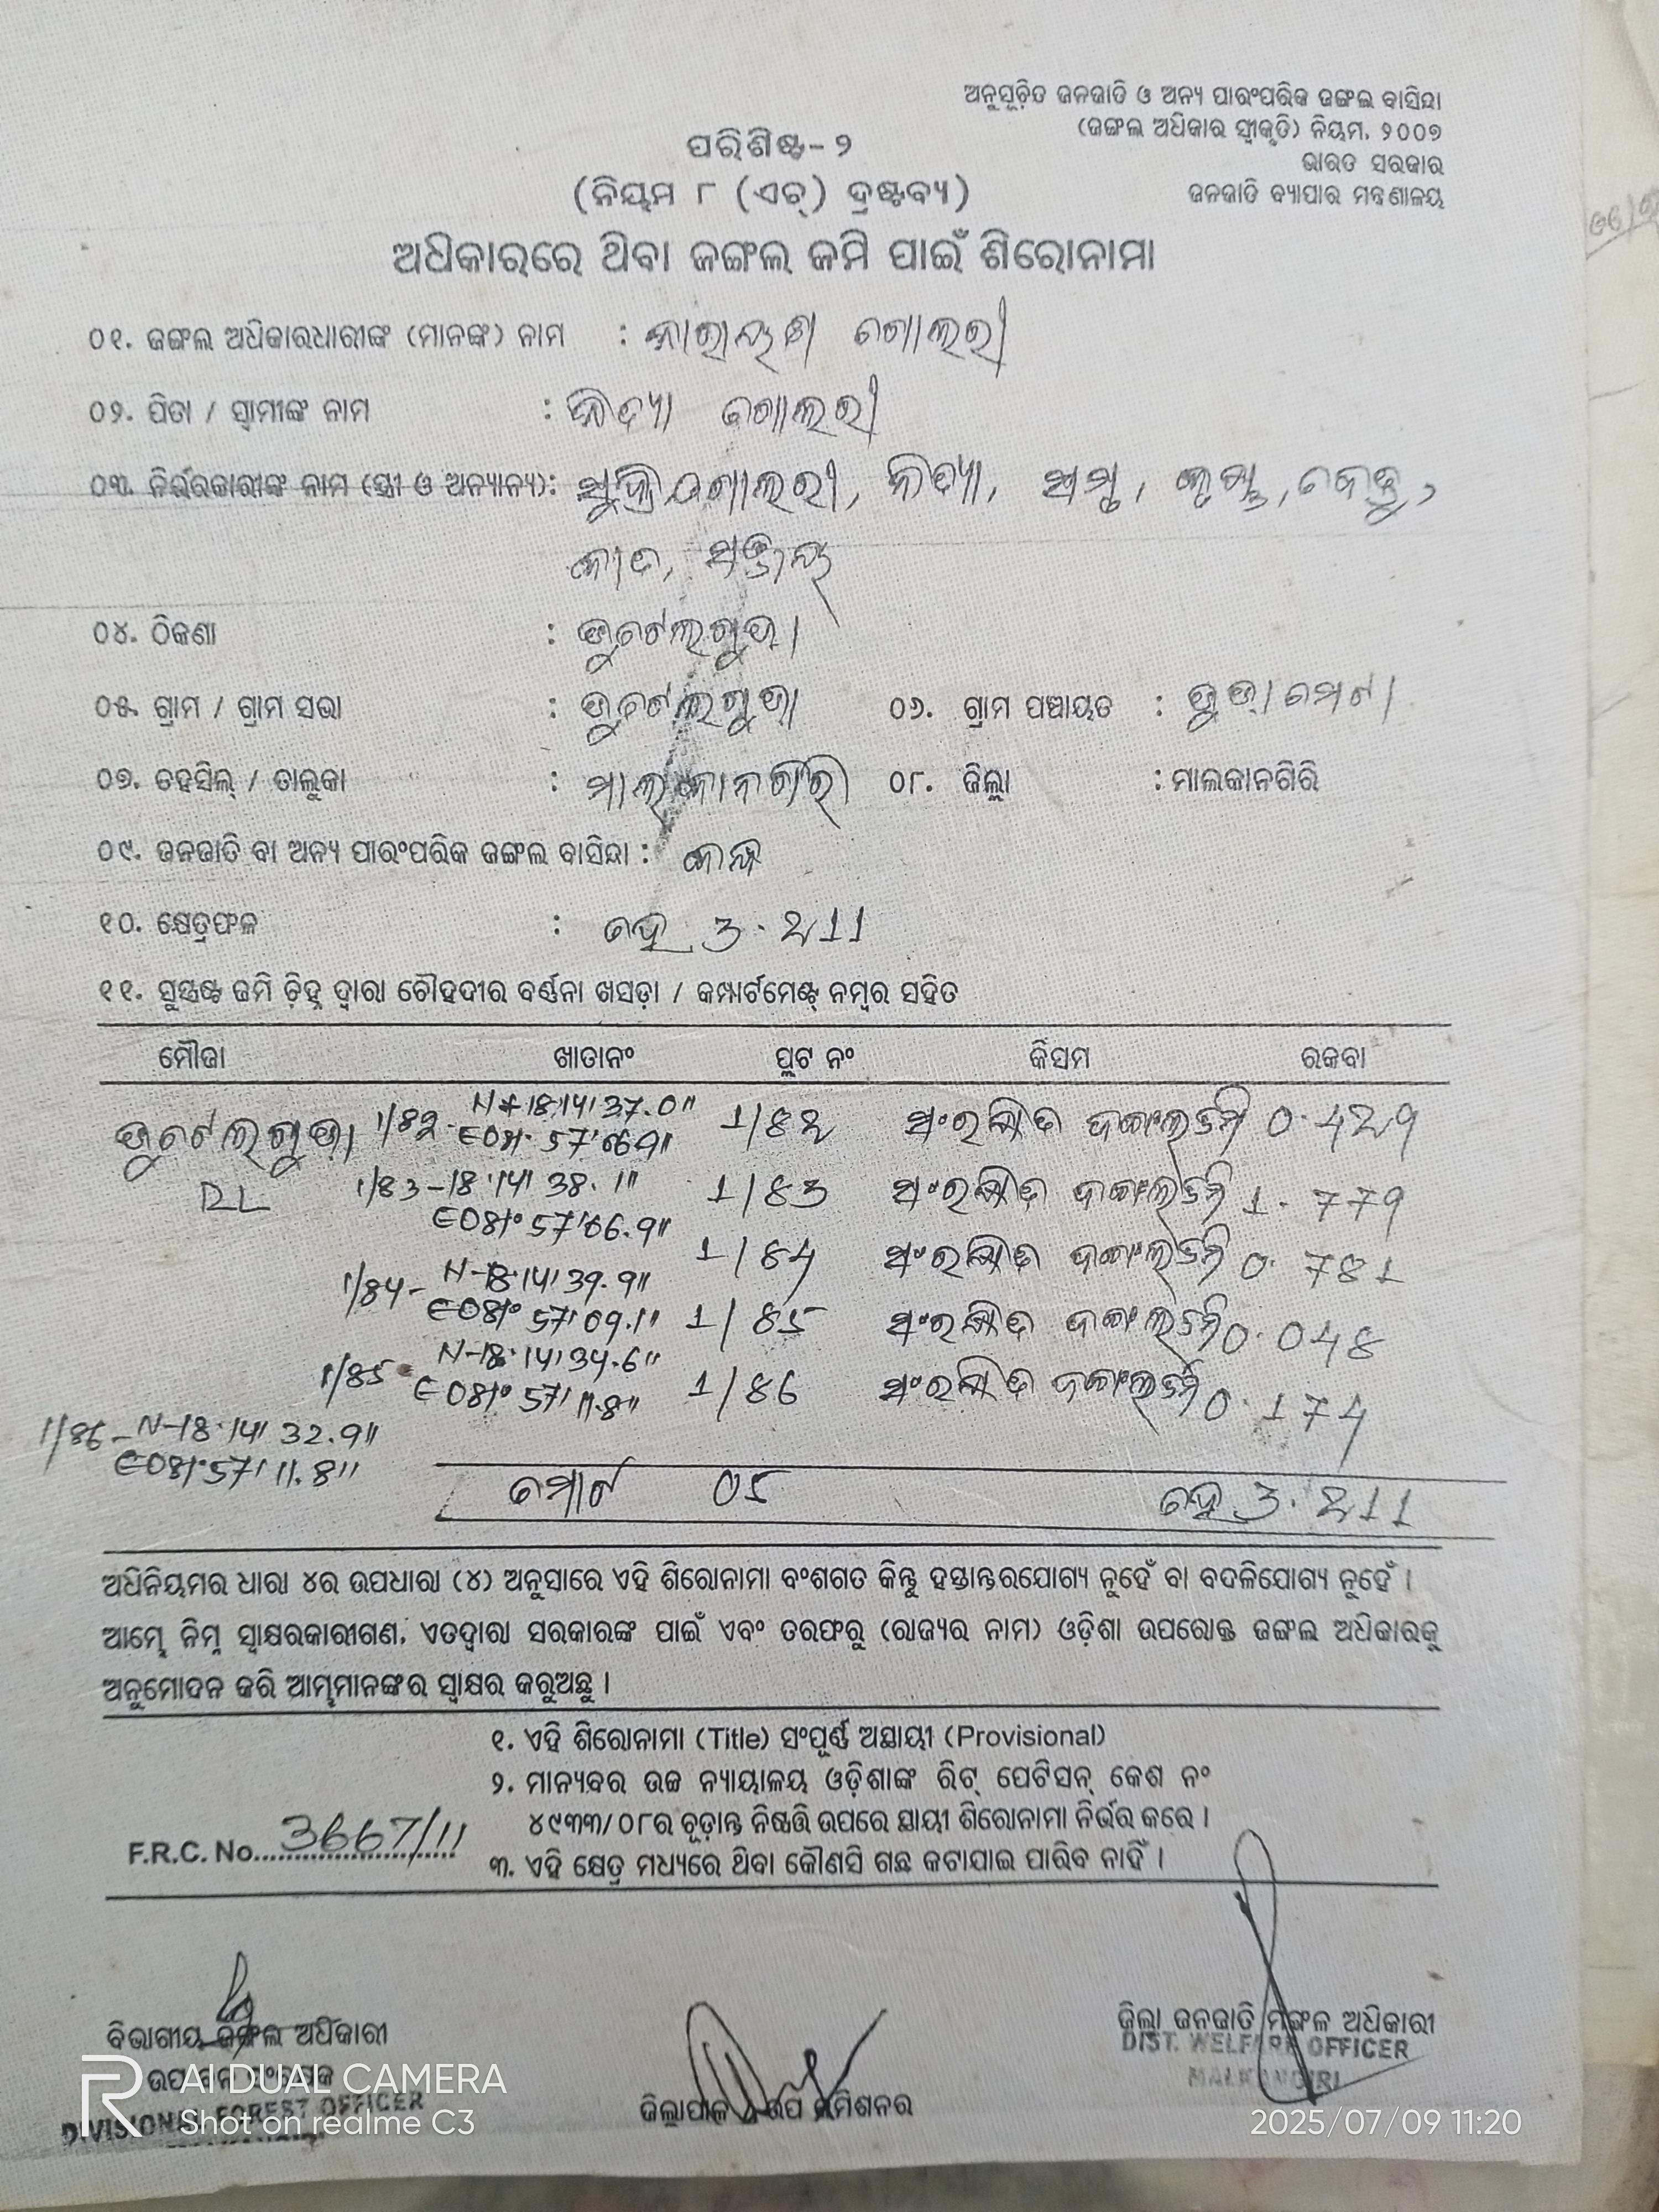 ଅନୁସୂଚିତ ଜନଜାତି ଓ ଅନ୍ୟ ପାରଂପରିକ ଜଙ୍ଗଲ ବାସିନ୍ଦା
(ଜଙ୍ଗଲ ଅଧିକାର ସ୍ୱୀକୃତି) ନିୟମ, ୨୦୦୭
ଭାରତ ସରକାର
ଜନଜାତି ବ୍ୟାପାର ମନ୍ତ୍ରଣାଳୟ
ପରିଶିଷ୍ଟ-୨
(ନିୟମ ୮ (ଏଚ୍) ଦ୍ରଷ୍ଟବ୍ୟ)
ଅଧିକାରରେ ଥିବା ଜଙ୍ଗଲ ଜମି ପାଇଁ ଶିରୋନାମା
୦୧. ଜଙ୍ଗଲ ଅଧିକାରଧାରୀଙ୍କ (ମାନଙ୍କ) ନାମ : ନାରାୟଣ ଗୋଲରୀ
୦୨. ପିତା / ସ୍ୱାମୀଙ୍କ ନାମ : ଗୋଲରୀ
୦୩. ନିର୍ଭରକାରୀଙ୍କ ନାମ (ସ୍ତ୍ରୀ ଓ ଅନ୍ୟାନ୍ୟ):
୦୪. ଠିକଣା :
୦୫. ଗ୍ରାମ / ଗ୍ରାମ ସଭା : ୦୬. ଗ୍ରାମ ପଞ୍ଚାୟତ :
୦୭. ତହସିଲ୍ / ତାଲୁକା : ମାଲକାନଗିରି ୦୮. ଜିଲ୍ଲା : ମାଲକାନଗିରି
୦୯. ଜନଜାତି ବା ଅନ୍ୟ ପାରଂପରିକ ଜଙ୍ଗଲ ବାସିନ୍ଦା :
୧୦. କ୍ଷେତ୍ରଫଳ : ହେ 3.211
୧୧. ସୁସ୍ପଷ୍ଟ ଜମି ଚ଼ିହ୍ନ ଦ୍ୱାରା ଚୌହଦୀର ବର୍ଣ୍ଣନା ଖସଡ଼ା / କମ୍ପାର୍ଟମେଣ୍ଟ୍ ନମ୍ବର ସହିତ
ମୌଜା ଖାତାନଂ ପ୍ଲଟ ନଂ କିସମ ରକବା
1/82 1/82 ସଂରକ୍ଷିତ ଜଙ୍ଗଲଜମି 0.429
RL 1/83-18°14' 38.1" 1/83 ସଂରକ୍ଷିତ ଜଙ୍ଗଲଜମି 1.779
E081° 57'06.9"
1/84- N-18°14' 39.9" 1/84 ସଂରକ୍ଷିତ ଜଙ୍ଗଲଜମି 0.781
E081° 57' 09.1" 1/85 ସଂରକ୍ଷିତ ଜଙ୍ଗଲଜମି 0.048
1/85 N-18°14' 34.6"
E081° 57' 11.8" 1/86 ସଂରକ୍ଷିତ ଜଙ୍ଗଲଜମି 0.174
1/86-N-18°14' 32.9"
E081°57' 11.8"
ମୋଟ 05 ହେ 3.211
ଅଧିନିୟମର ଧାରା ୪ର ଉପଧାରା (୪) ଅନୁସାରେ ଏହି ଶିରୋନାମା ବଂଶଗତ କିନ୍ତୁ ହସ୍ତାନ୍ତରଯୋଗ୍ୟ ନୁହେଁ ବା ବଦଳିଯୋଗ୍ୟ ନୁହେଁ ।
ଆମ୍ଭେ ନିମ୍ନ ସ୍ୱାକ୍ଷରକାରୀଗଣ, ଏତଦ୍ୱାରା ସରକାରଙ୍କ ପାଇଁ ଏବଂ ତରଫରୁ (ରାଜ୍ୟର ନାମ) ଓଡ଼ିଶା ଉପରୋକ୍ତ ଜଙ୍ଗଲ ଅଧିକାରକୁ
ଅନୁମୋଦନ କରି ଆମ୍ଭମାନଙ୍କର ସ୍ୱାକ୍ଷର କରୁଅଛୁ ।
୧. ଏହି ଶିରୋନାମା (Title) ସଂପୂର୍ଣ୍ଣ ଅସ୍ଥାୟୀ (Provisional)
୨. ମାନ୍ୟବର ଉଚ୍ଚ ନ୍ୟାୟାଳୟ ଓଡ଼ିଶାଙ୍କ ରିଟ୍ ପେଟିସନ୍ କେଶ ନଂ
୪୯୩୩/୦୮ର ଚୂଡ଼ାନ୍ତ ନିଷ୍ପତ୍ତି ଉପରେ ସ୍ଥାୟୀ ଶିରୋନାମା ନିର୍ଭର କରେ ।
F.R.C. No. 3667/11
୩. ଏହି କ୍ଷେତ୍ର ମଧ୍ୟରେ ଥିବା କୌଣସି ଗଛ କଟାଯାଇ ପାରିବ ନାହିଁ ।
ବିଭାଗୀୟ ଜଙ୍ଗଲ ଅଧିକାରୀ
DIVISIONAL FOREST OFFICER
ଜିଲ୍ଲାପାଳ
ଜିଲ୍ଲା ଜନଜାତି ମଙ୍ଗଳ ଅଧିକାରୀ
DIST. WELFARE OFFICER
MALKANGIRI
AI DUAL CAMERA
Shot on realme C3
2025/07/09 11:20